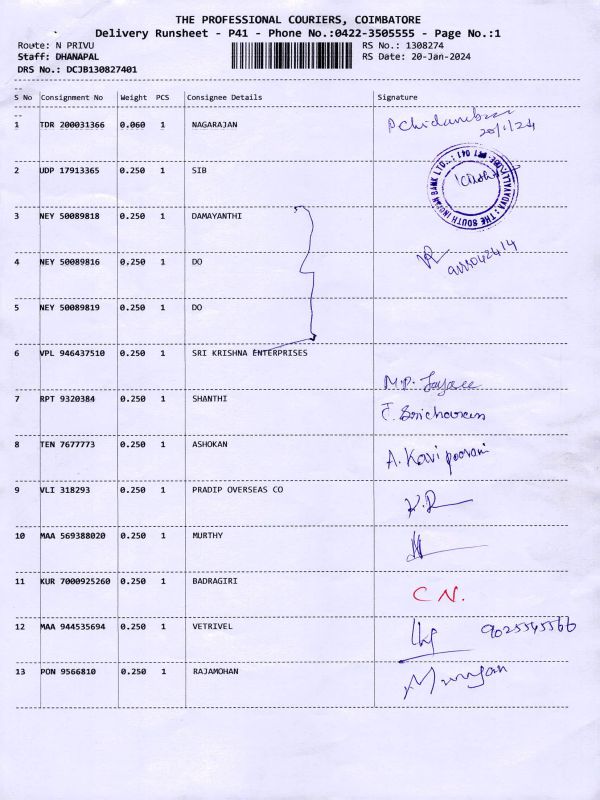 THE PROFESSIONAL COURIERS, COIMBATORE
Delivery Runsheet - P41 - Phone No.:0422-3505555 - Page No.:1
Route: N PRIVU RS No.: 1308274
Staff: DHANAPAL RS Date: 20-Jan-2024
DRS No.: DCJB130827401
S No Consignment No Weight PCS Consignee Details Signature
1 TDR 200031366 0.060 1 NAGARAJAN
20/1/24
2 UDP 17913365 0.250 1 SIB
THE SOUTH INDIAN BANK LTD.
3 NEY 50089818 0.250 1 DAMAYANTHI
4 NEY 50089816 0.250 1 DO
5 NEY 50089819 0.250 1 DO
6 VPL 946437510 0.250 1 SRI KRISHNA ENTERPRISES
M.P.
7 RPT 9320384 0.250 1 SHANTHI
8 TEN 7677773 0.250 1 ASHOKAN A. Kavi poorani
9 VLI 318293 0.250 1 PRADIP OVERSEAS CO
10 MAA 569388020 0.250 1 MURTHY
11 KUR 7000925260 0.250 1 BADRAGIRI C N.
12 MAA 944535694 0.250 1 VETRIVEL 9025545566
13 PON 9566810 0.250 1 RAJAMOHAN Murugan